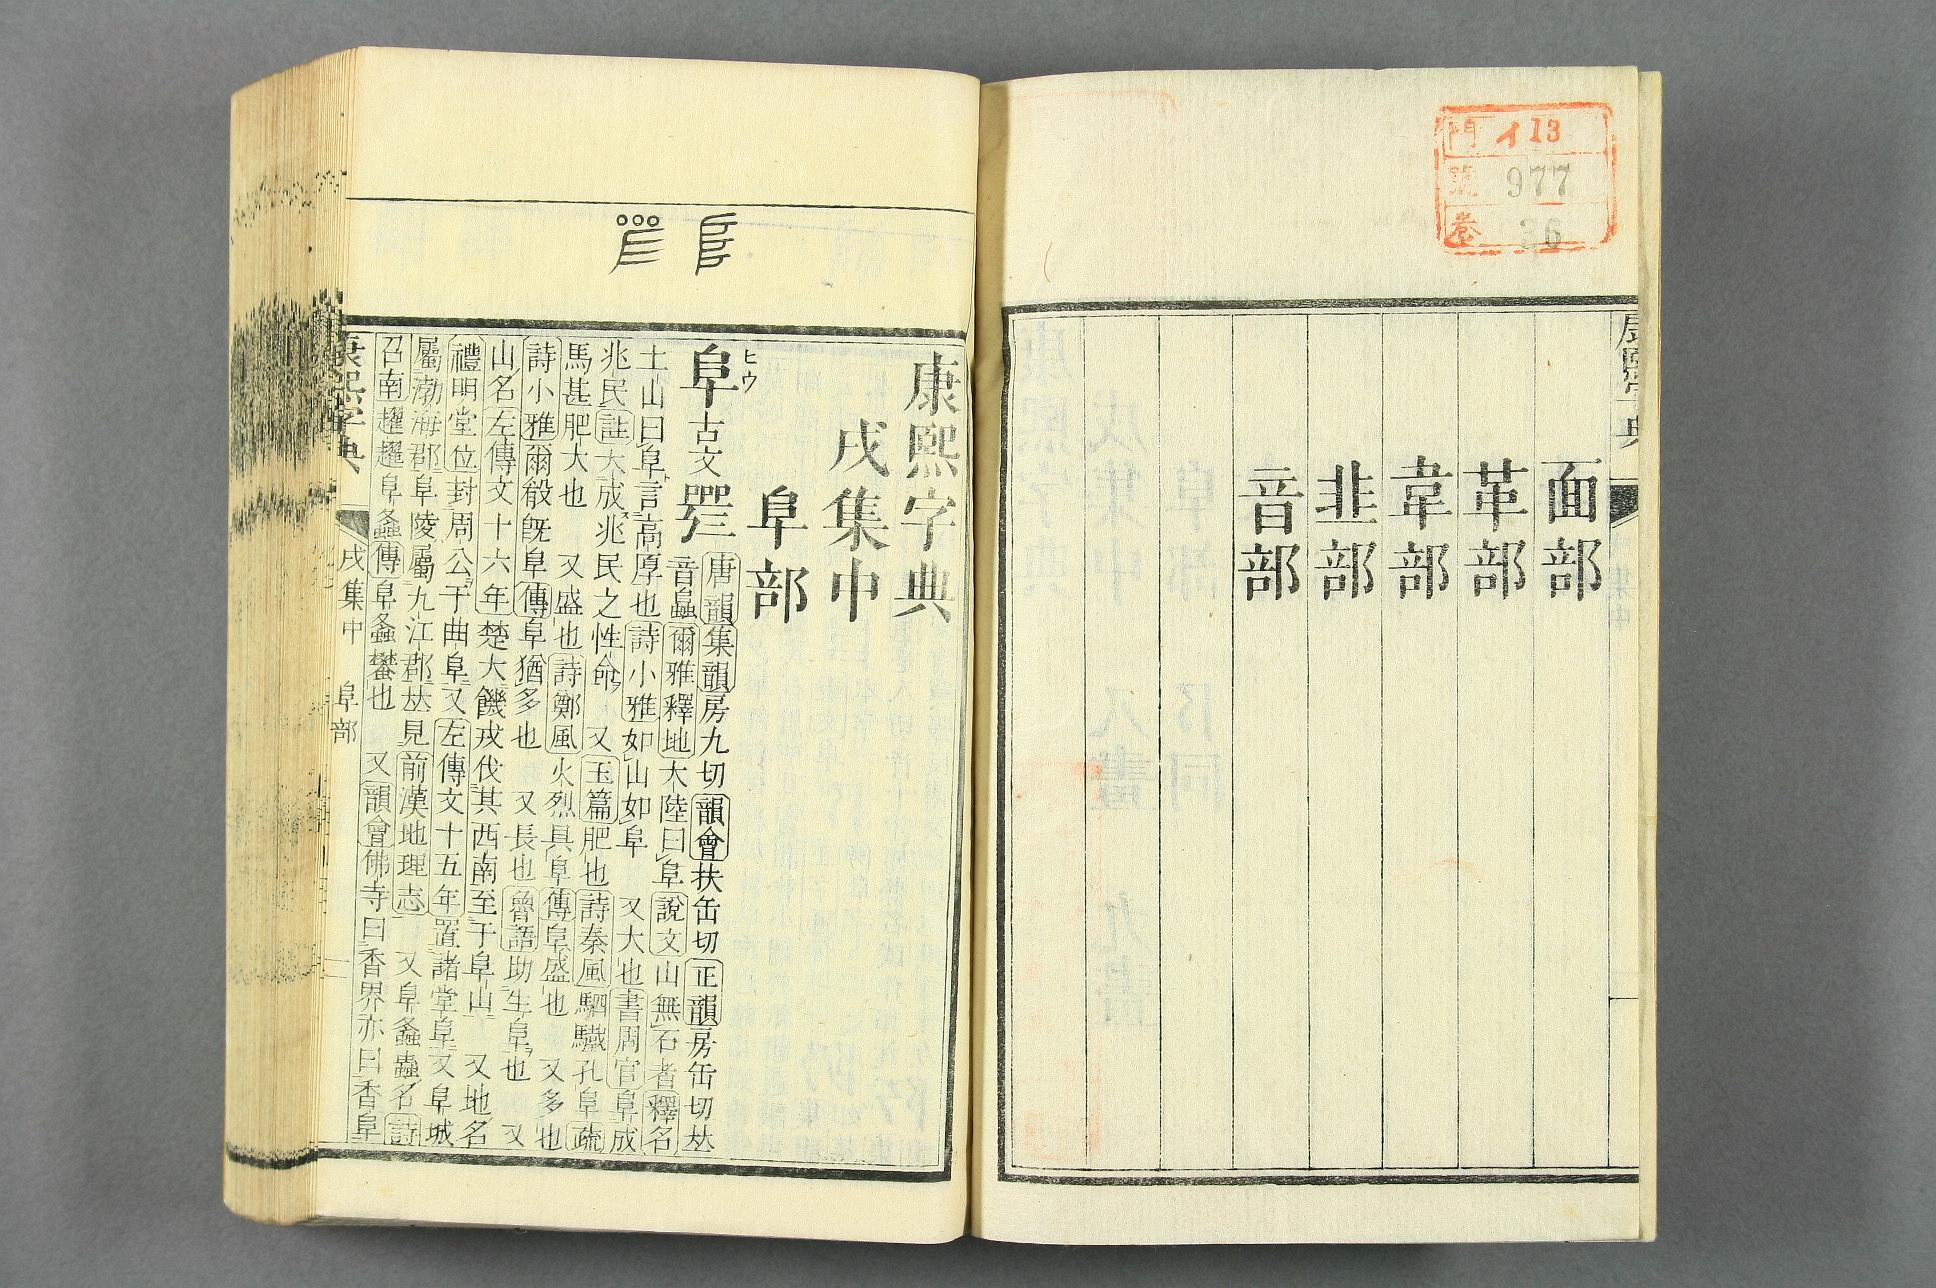 門 イ13
號 977
卷 36
面部
革部
韋部
韭部
音部
康熙字典
戌集中
阜部
ヒウ
阜古文𨸏
唐韻集韻房九切韻會扶缶切正韻房缶切𠀤
音蝜爾雅釋地大陸曰阜說文山無石者釋名
土山曰阜言高厚也詩小雅如山如阜 又大也書周官阜成
兆民註大成兆民之性命 又玉篇肥也詩秦風駟驖孔阜疏
馬甚肥大也 又盛也詩鄭風火烈具阜傳阜盛也 又多也
詩小雅爾殽旣阜傳阜猶多也 又長也魯語助生阜也 又
山名左傳文十六年楚大饑戎伐其西南至于阜山 又地名
禮明堂位封周公于曲阜又左傳文十五年置諸堂阜又阜城
屬渤海郡阜陵屬九江郡𠀤見前漢地理志 又阜螽蟲名詩
召南趯趯阜螽傳阜螽蠜也 又韻會佛寺曰香界亦曰香阜
康熙字典 戌集中 阜部 一